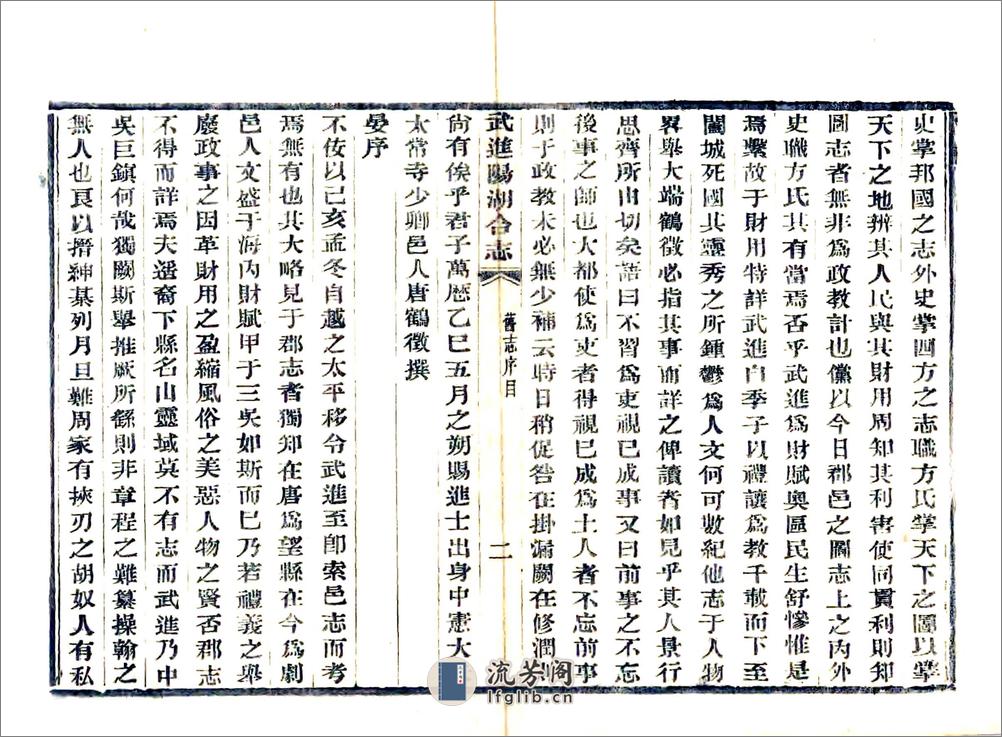 史掌邦國之志外史掌四方之志職方氏掌天下之圖以掌
天下之地辨其人民與其財用周知其利害使同貫利則知
圖志者無非爲政教計也儻以今日郡邑之圖志上之內外
史職方氏其有當焉否乎武進爲財賦奧區民生舒慘惟是
焉繫故于財用特詳武進自季子以禮讓爲教千載而下至
闔城死國其靈秀之所鍾鬱爲人文何可數紀他志于人物
畧舉大端鶴徵必指其事而詳之俾讀者如見乎其人景行
思齊所由切矣語曰不習爲吏視已成事又曰前事之不忘
後事之師也大都使爲吏者得視已成爲士人者不忘前事
則于政教未必無少補云時日稍促咎在掛漏闕在修潤則
武進陽湖合志
舊志序目
二
尙有俟乎君子萬曆乙巳五月之朔賜進士出身中憲大
太常寺少卿邑人唐鶴徵撰
晏序
不佞以己亥孟冬自越之太平移令武進至卽索邑志而考
焉無有也其大略見于郡志者獨知在唐爲望縣在今爲劇
邑人文盛于海內財賦甲于三吳如斯而已乃若禮義之舉
廢政事之因革財用之盈縮風俗之美惡人物之賢否郡志
不得而詳焉夫遥裔下縣名山靈域莫不有志而武進乃中
吳巨鎮何哉獨闕斯舉推厥所繇則非章程之難纂操翰之
無人也良以搢紳棊列月旦難周家有挾刃之胡奴人有私
流芳阁
lfglib.cn